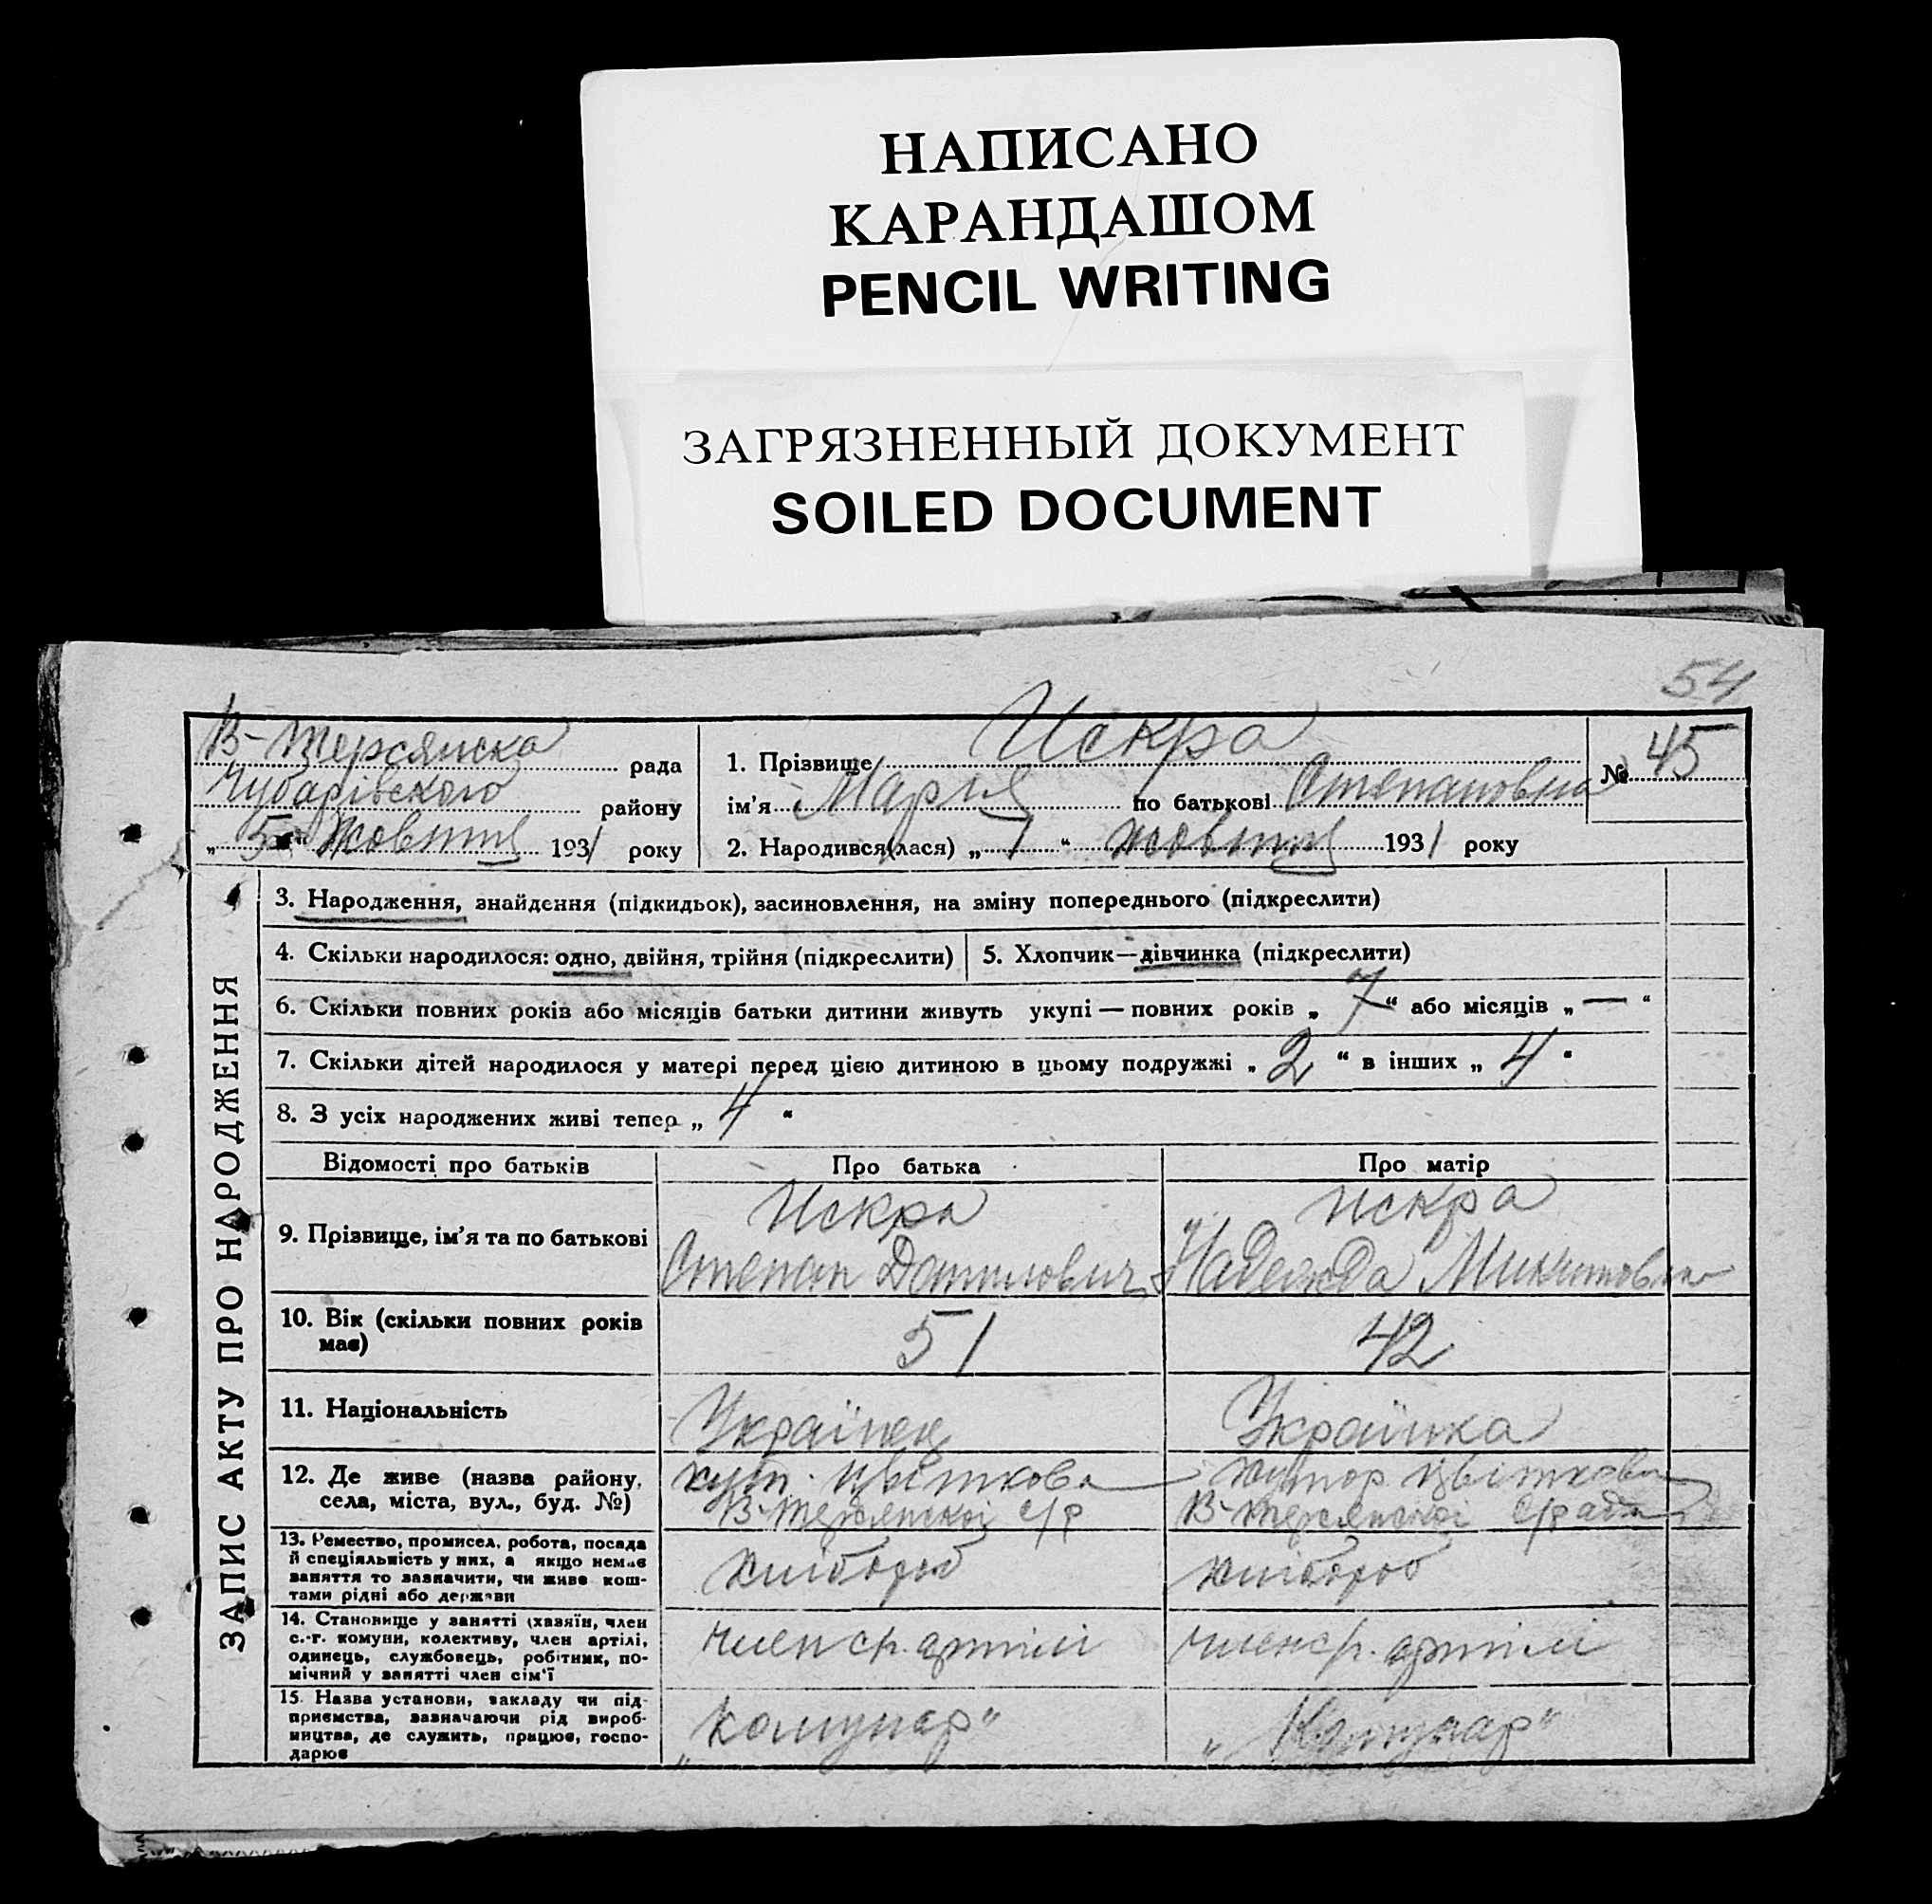 НАПИСАНО
КАРАНДАШОМ
PENCIL WRITING
ЗАГРЯЗНЕННЫЙ ДОКУМЕНТ
SOILED DOCUMENT
54
В-Терсянска рада
Чубарівского району
„5“ жовтня 1931 року
1. Прізвище Искра
ім’я Мария по батькові Степановна
№ 45
2. Народився(лася) „1“ жовтня 1931 року
ЗАПИС АКТУ ПРО НАРОДЖЕННЯ
3. Народження, знайдення (підкидьок), засиновлення, на зміну попереднього (підкреслити)
4. Скільки народилося: одно, двійня, трійня (підкреслити) 5. Хлопчик—дівчинка (підкреслити)
6. Скільки повних років або місяців батьки дитини живуть укупі — повних років „7“ або місяців „—“
7. Скільки дітей народилося у матері перед цією дитиною в цьому подружжі „2“ в інших „4“
8. З усіх народжених живі тепер „4“
Відомості про батьків Про батька Про матір
9. Прізвище, ім’я та по батькові
Искра
Степан Данилович
Искра
Надежда Микитовна
10. Вік (скільки повних років
має)
51
42
11. Національність
Українец
Українка
12. Де живе (назва району,
села, міста, вул., буд. №)
хут. Цвіткова
В-Терсянскої с/р
хутор Цвіткова
В-Терсянскої с/рада
13. Ремество, промисел, робота, посада
й спеціяльність у них, а якщо немає
заняття то зазначити, чи живе кош-
тами рідні або держави
хлібороб
хлібороб
14. Становище у занятті (хазяїн, член
с.-г. комуни, колективу, член артілі,
одинець, службовець, робітник, по-
мічний у занятті член сім’ї
член ср. артілі
член ср. артілі
15. Назва установи, закладу чи під-
приємства, зазначаючи рід вироб-
ництва, де служить, працює, госпо-
дарює
„Комунар“
„Комунар“